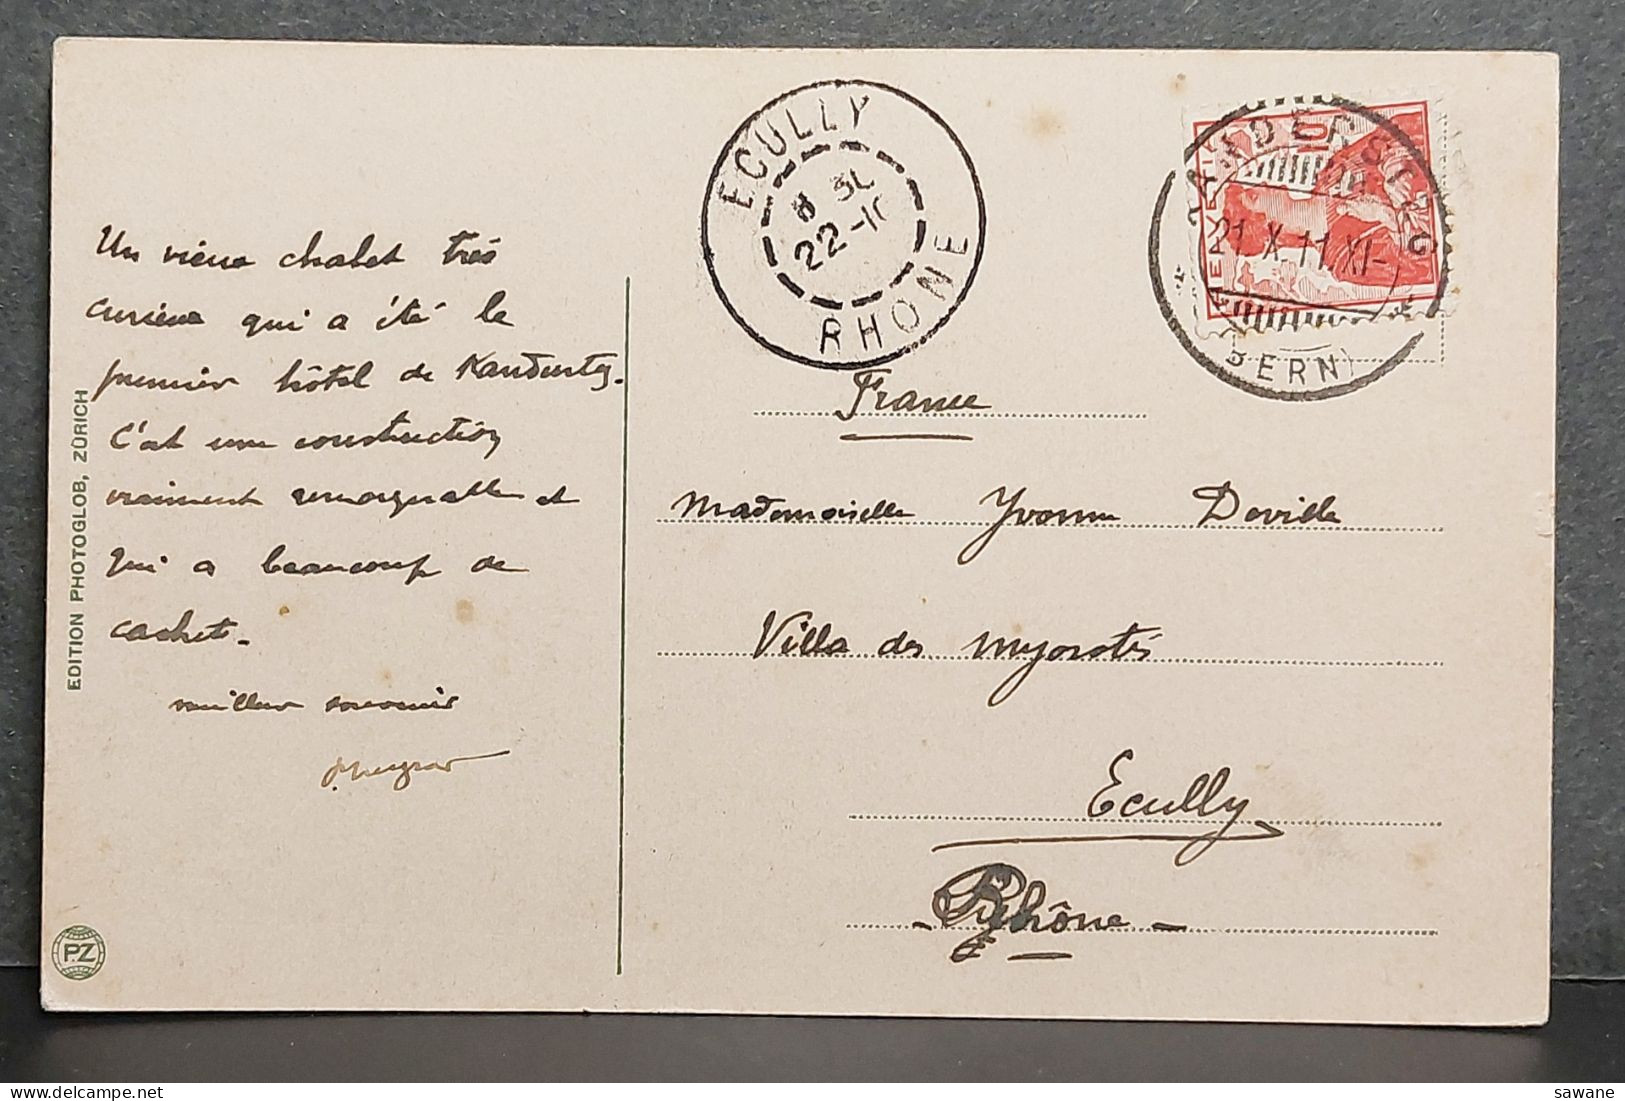 Un vieux chalet très
curieux qui a été le
premier hôtel de Kandersteg.
C'est une construction
vraiment remarquable et
qui a beaucoup de
cachet.
meilleur souvenir
EDITION PHOTOGLOB, ZÜRICH
P.Z
ECULLY
22-10
RHONE
HELVETIA
10
KANDERSTEG
21.X.11.XI-
(BERN)
France
Mademoiselle Yvonne Deville
Villa des myosotis
Ecully
- Rhône -
sawane